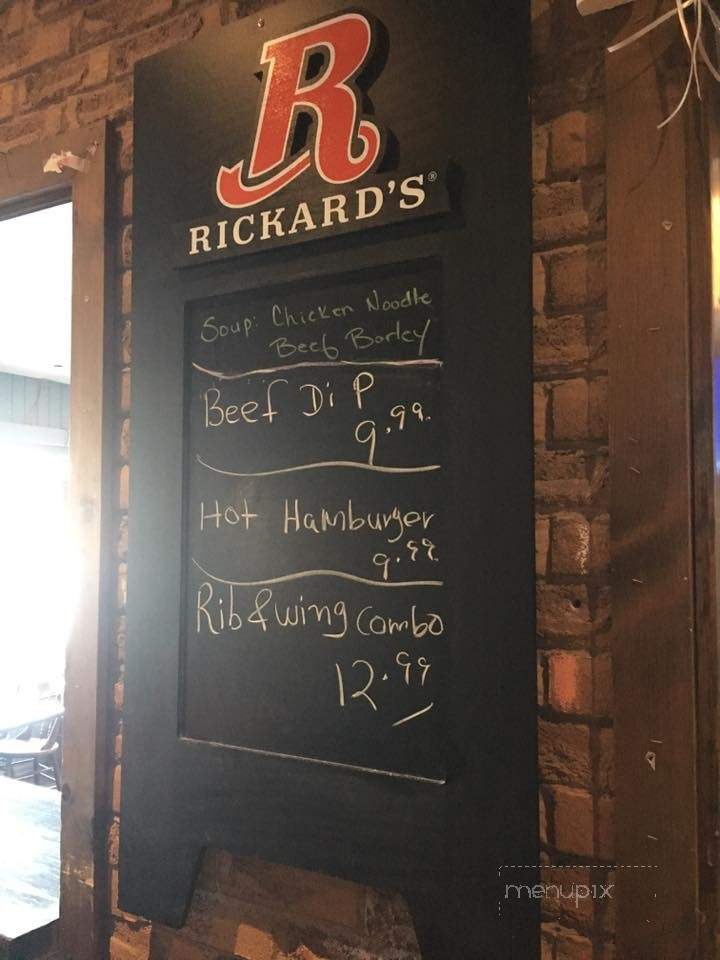 R
RICKARD'S®
Soup: Chicken Noodle
Beef Barley
Beef Dip
9.99
Hot Hamburger
9.99
Rib & wing combo
12.99
menupix